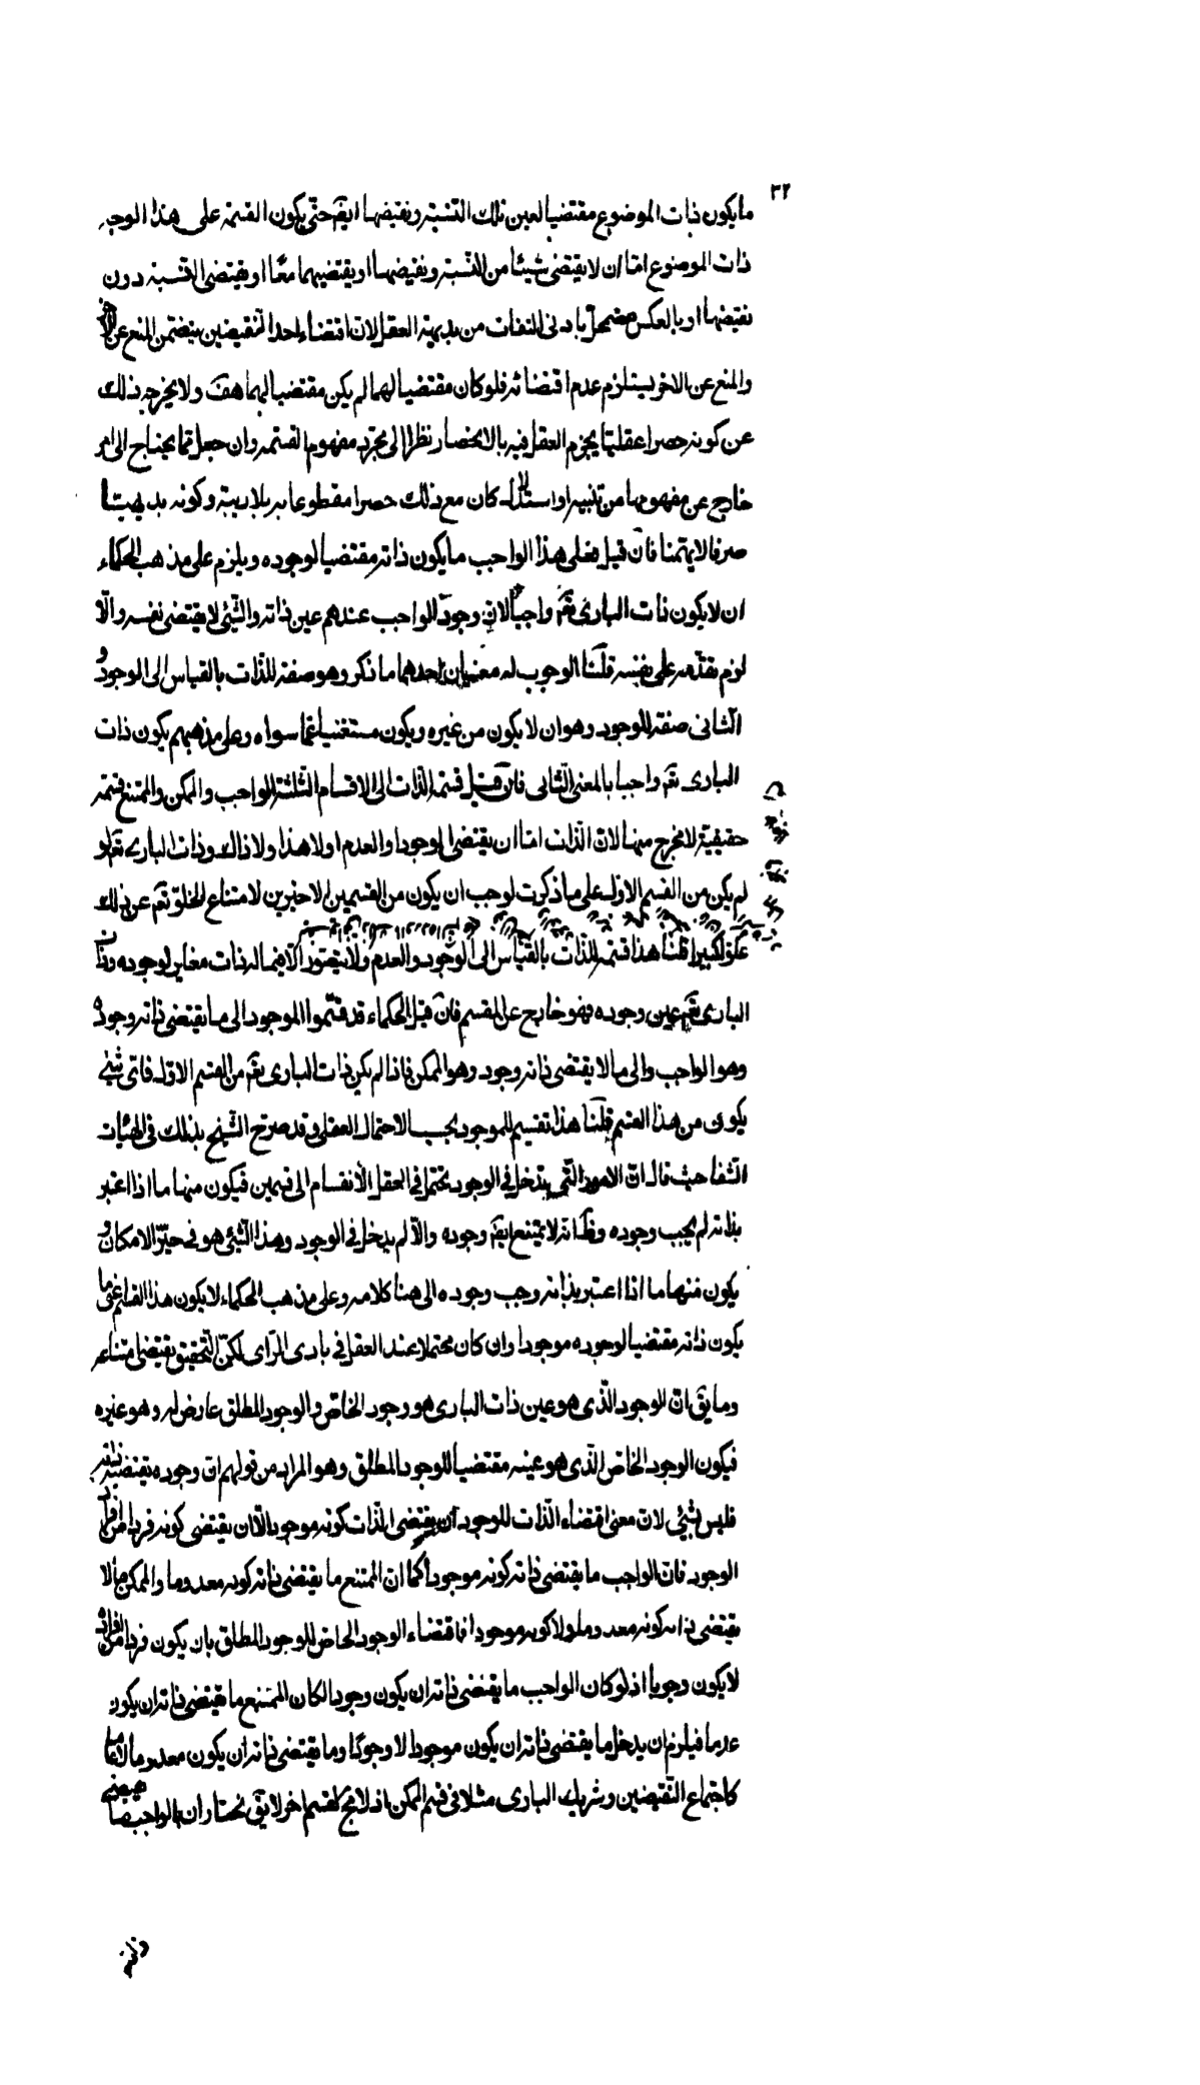 ٣٢
ما يكون ذات الموضوع مقتضيا لعين تلك النسبة ونقيضها ايضا حتى يكون القسمة على هذا الوجه
ذات الموضوع اما ان لا يقتضى شيئا من النسبة ونقيضها او يقتضيهما معًا او يقتضى النسبة دون
نقيضها او بالعكس مضمحل بادنى التفات من بديهة العقل لان اقتضاء احد النقيضين يتضمن المنع عن الاخر
والمنع عن الاخر يستلزم عدم اقتضائه فلو كان مقتضيا لهما لم يكن مقتضيا لهما هف ولا يخرجه ذلك
عن كونه حصرا عقليا يجزم العقل فيه بالانحصار نظرا الى مجرد مفهوم القسمة وان جعل مما يحتاج الى امر
خارج عن مفهومها من تنبيه او استدلال كان مع ذلك حصرا مقطوعا به بلا ريبة وكونه بديهيتا
صرفا لا يهمنا فان قيل فعلى هذا الواجب ما يكون ذاته مقتضيا لوجوده ويلزم على مذهب الحكماء
ان لا يكون ذات البارى تعم واجبًا لان وجود الواجب عندهم عين ذاته والشئ لا يقتضى نفسه والّا
لزم تقدمه على نفسه قلنا الوجوب له معنيان احدهما ما ذكر وهو صفة للذات بالقياس الى الوجود و
الثانى صفة للوجود وهو ان لا يكون من غيره ويكون مستغنيا عما سواه وعلى مذهبهم يكون ذات
البارى تعم واجبا بالمعنى الثانى فان قيل قسمة الذات الى الاقسام الثلثة الواجب والممكن والممتنع قسمة
حقيقية لا مخرج منها لان الذات اما ان يقتضى الوجود او العدم او لا هذا ولا ذاك وذات البارى تعم لو
لم يكن من القسم الاول على ما ذكرت لوجب ان يكون من القسمين الاخيرين لامتناع الخلو تعم عن ذلك
علوا كبيرا قلنا هذا قسمة للذات بالقياس الى الوجود والعدم ولا يتصور الا فيما له ذات مغاير لوجوده وذات
البارى تعم عين وجوده فهو خارج عن المقسم فان قيل الحكماء قد قسّموا الموجود الى ما يقتضى ذاته وجوده
وهو الواجب والى ما لا يقتضى ذاته وجوده وهو الممكن فاذا لم يكن ذات البارى تعم من القسم الاول فاى شئ
يكون من هذا القسم قلنا هذا تقسيم للموجود بحسب الاحتمال العقلى وقد صرح الشيخ بذلك فى الهيّات
الشفا حيث قال انّ الامور التى يدخل فى الوجود يحتمل فى العقل الانقسام الى قسمين فيكون منها ما اذا اعتبر
بذاته لم يجب وجوده وظ انه لا يمتنع ايضا وجوده والا لم يدخل فى الوجود وهذا الشئ هو فى حيّز الامكان و
يكون منها ما اذا اعتبر بذاته وجب وجوده الى هنا كلامه وعلى مذهب الحكماء لا يكون هذا القسم اعنى ما
يكون ذاته مقتضيا لوجوده موجودا وان كان محتملا عند العقل فى بادى الراى لكن التحقيق يقتضى امتناعه
وما يق ان الوجود الذى هو عين ذات البارى هو وجود الخاص والوجود المطلق عارض له وهو غيره
فيكون الوجود الخاص الذى هو عينه مقتضيا للوجود المطلق وهو المراد من قولهم ان وجوده يقتضيه ذاته
فليس بشئ لان معنى اقتضاء الذات للوجود ان يقتضى الذات كونه موجودا لا ان يقتضى كونه فردا من افراد
الوجود فان الواجب ما يقتضى ذاته كونه موجودا كما ان الممتنع ما يقتضى ذاته كونه معدوما والممكن ما لا
يقتضى ذاته كونه معدوما ولا كونه موجودا فاقتضاء الوجود الخاص للوجود المطلق بان يكون فردا من افراده
لا يكون وجوبا اذ لو كان الواجب ما يقتضى ذاته ان يكون وجودا لكان الممتنع ما يقتضى ذاته ان يكون
عدما فيلزم ان يدخل ما يقتضى ذاته ان يكون موجودا لا وجودًا وما يقتضى ذاته ان يكون معدوما لا عدما
كاجتماع النقيضين وشريك البارى مثلا فى قسم الممكن اذ لا مخرج لقسم اخر لا يق نختار ان الواجب